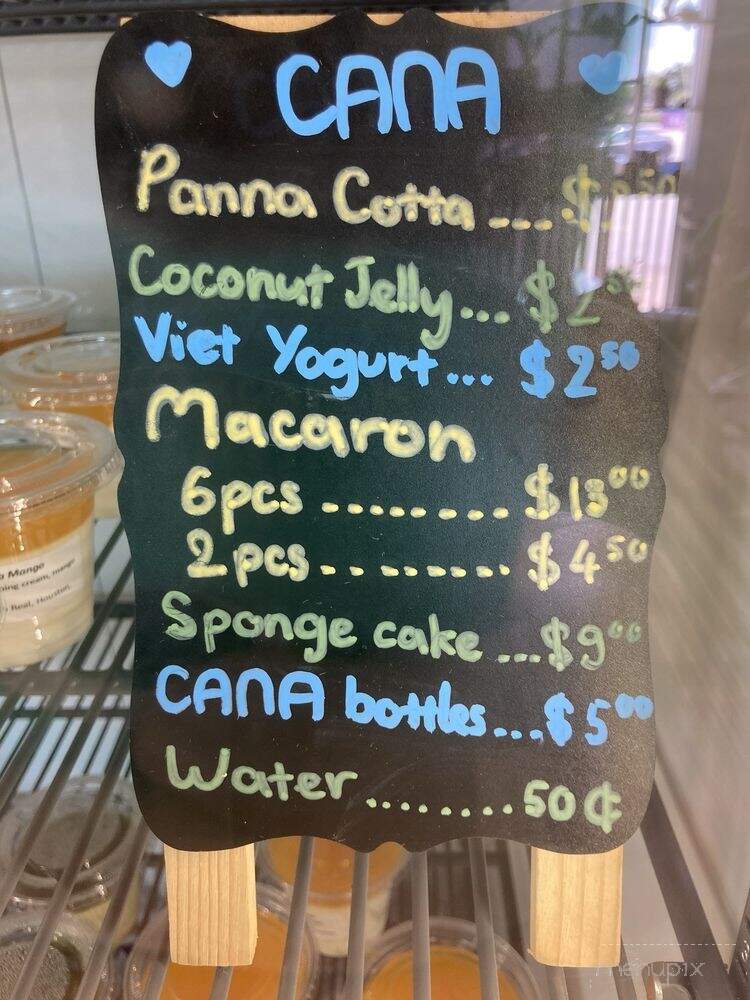 CANA
Panna Cotta ... $
Coconut Jelly... $2
Viet Yogurt... $2⁵⁰
Macaron
6pcs ......... $13⁰⁰
2pcs ......... $4⁵⁰
Sponge cake ...$9⁰⁰
CANA bottles...$5⁰⁰
Water ........50¢
Mango
cream, mango
Real, Houston,
menupix